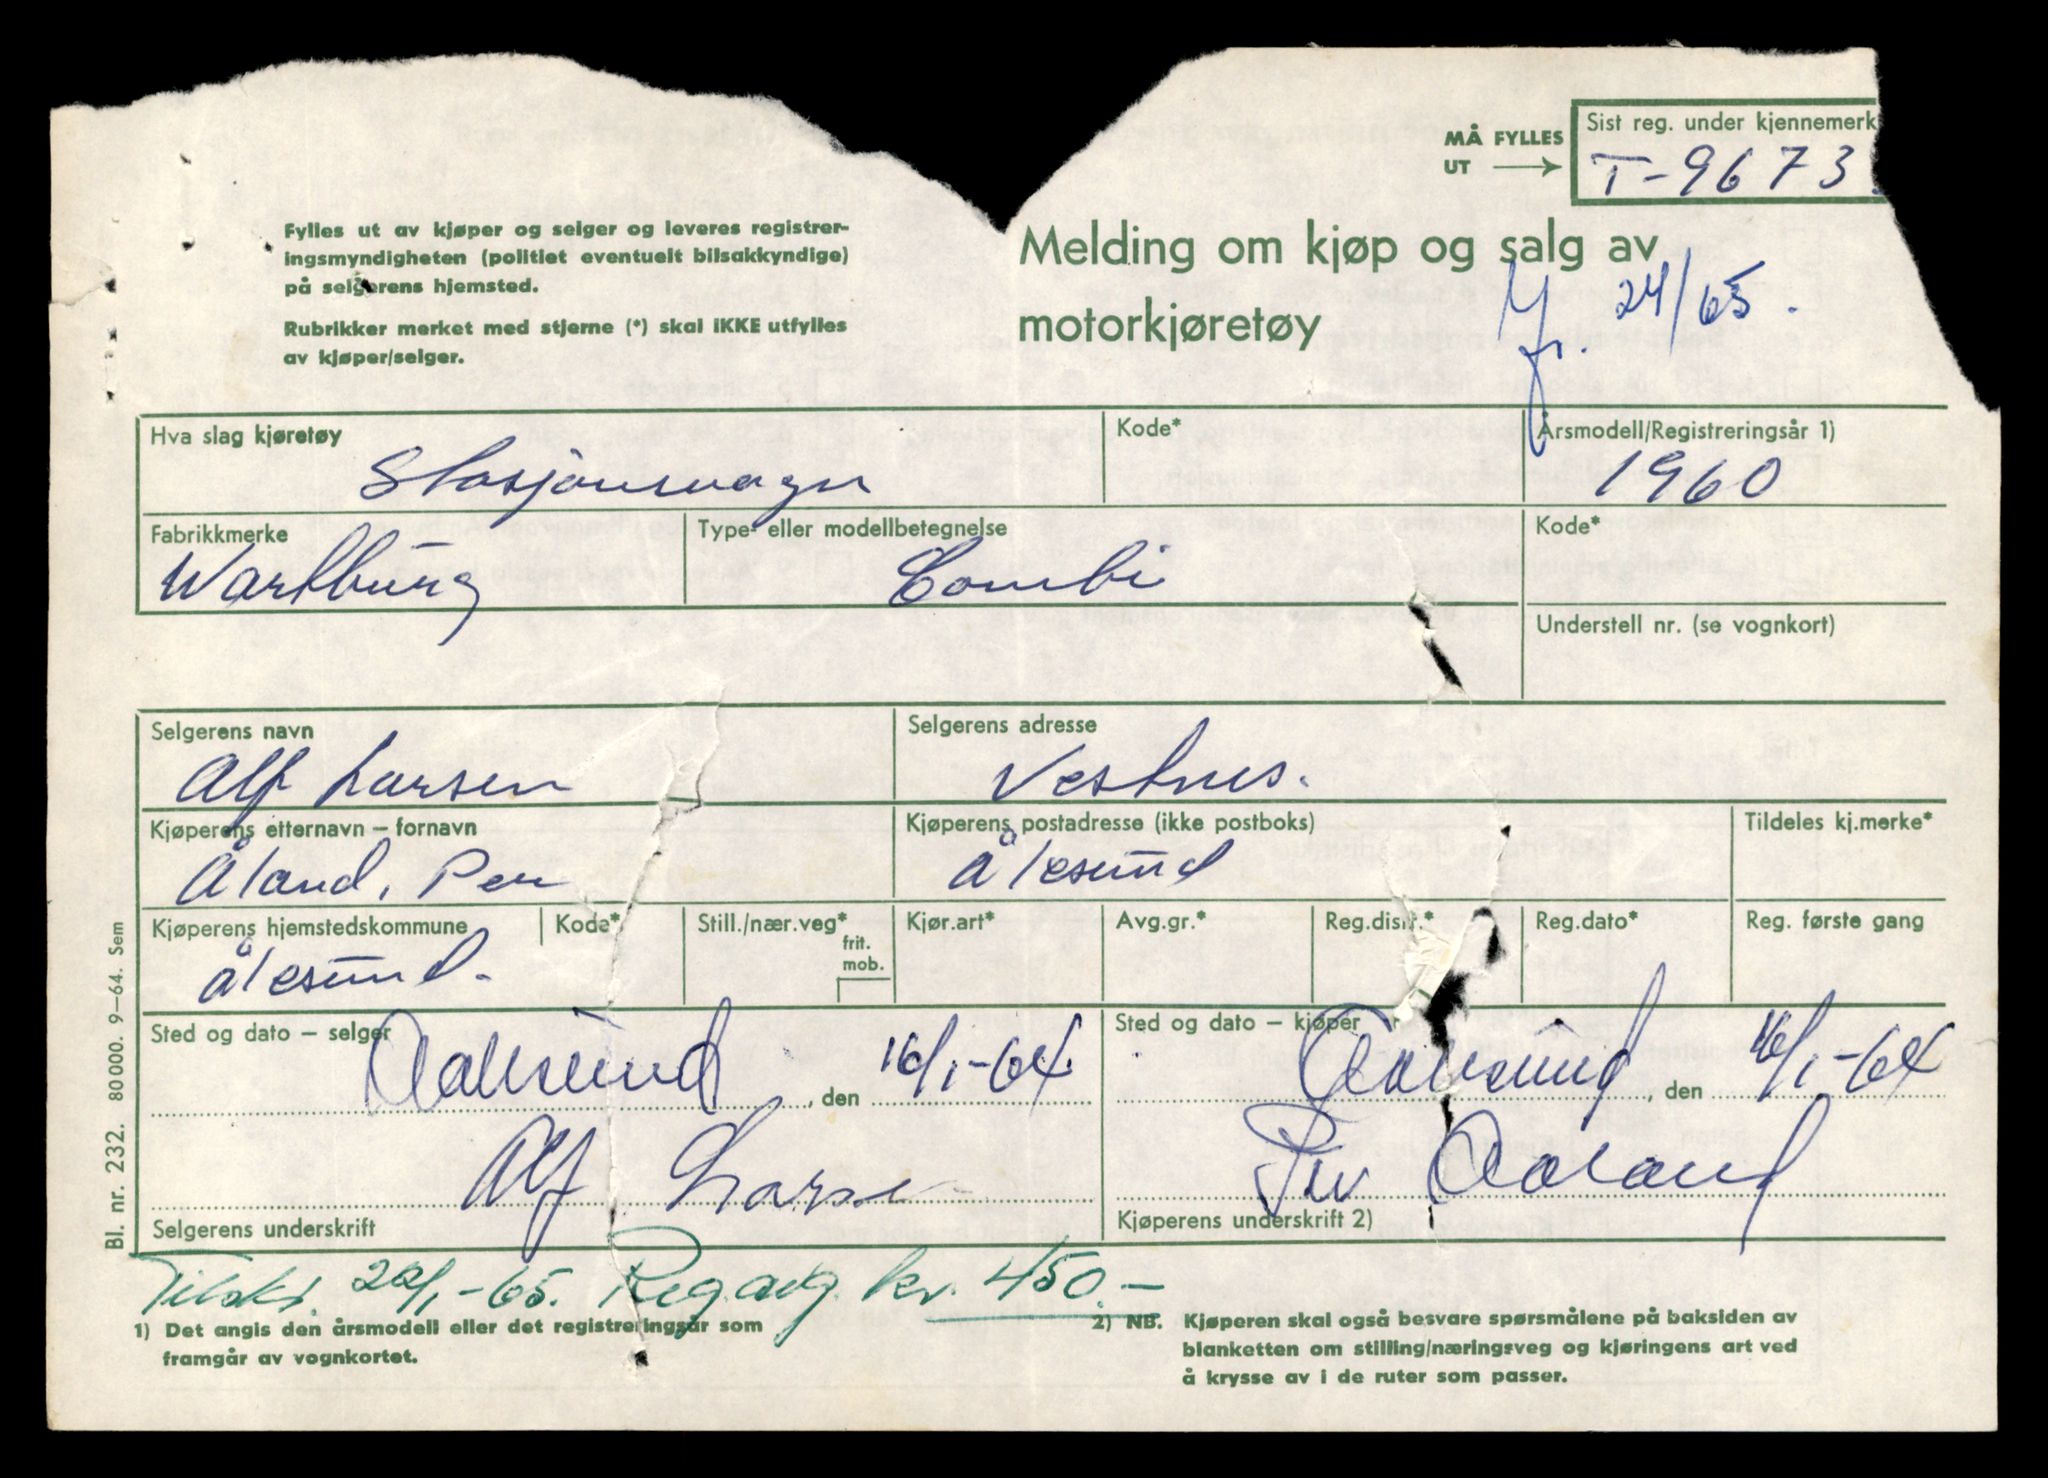 MÅ FYLLES
UT
Sist reg. under kjennemerk
T-9673
Fylles ut av kjøper og selger og leveres registrer-
ingsmyndigheten (politiet eventuelt bilsakkyndige)
på selgerens hjemsted.
Rubrikker merket med stjerne (*) skal IKKE utfylles
av kjøper/selger.
Melding om kjøp og salg av
motorkjøretøy
24/65.
Hva slag kjøretøy
Stasjonsvogn
Kode*
Årsmodell/Registreringsår 1)
1960
Fabrikkmerke
Wartburg
Type- eller modellbetegnelse
Combi
Kode*
Understell nr. (se vognkort)
Selgerens navn
Alf Larsen
Selgerens adresse
Vestnes.
Kjøperens etternavn – fornavn
Åland, Per
Kjøperens postadresse (ikke postboks)
Ålesund
Tildeles kj.merke*
Kjøperens hjemstedskommune
Ålesund.
Kode*
Still./nær.veg*
frit.
mob.
Kjør.art*
Avg.gr.*
Reg.distr.*
Reg.dato*
Reg. første gang
Sted og dato – selger
Aalesund, den 16/1-64
Sted og dato – kjøper
Aalesund, den 16/1-64
Alf Larsen
Selgerens underskrift
Per Aaland
Kjøperens underskrift 2)
Tilskr. 20/1-65. Reg.avg. kr. 450.-
1) Det angis den årsmodell eller det registreringsår som
framgår av vognkortet.
2) NB. Kjøperen skal også besvare spørsmålene på baksiden av
blanketten om stilling/næringsveg og kjøringens art ved
å krysse av i de ruter som passer.
Bl. nr. 232. 80000. 9–64. Sem